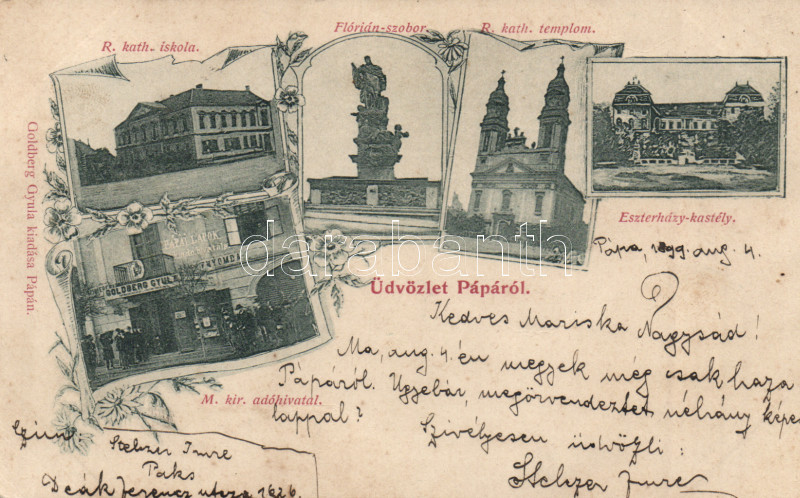 R. kath. iskola.
Flórián-szobor.
R. kath. templom.
Eszterházy-kastély.
Goldberg Gyula kiadása Pápán.
PÁPAI LAPOK
GOLDBERG GYULA
NYOMD
M. kir. adóhivatal.
Üdvözlet Pápáról.
Pápa, 1899. aug. 4.
Kedves Mariska Nagysád!
Ma, aug. 4.-én megyek még csak haza
Pápáról. Ugyebár, megörvendeztet néhány képes
lappal?
Szívélyesen üdvözli:
Stelzer Imre
Czím
Stelzer Imre
Paks
Deák Ferencz utcza 1626.
darabanth